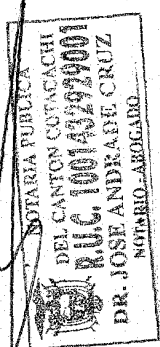 NOTARIA PUBLICA
DEL CANTON COTACACHI
R.U.C. 1001432929001
DR. JOSE ANDRADE CRUZ
NOTARIO - ABOGADO